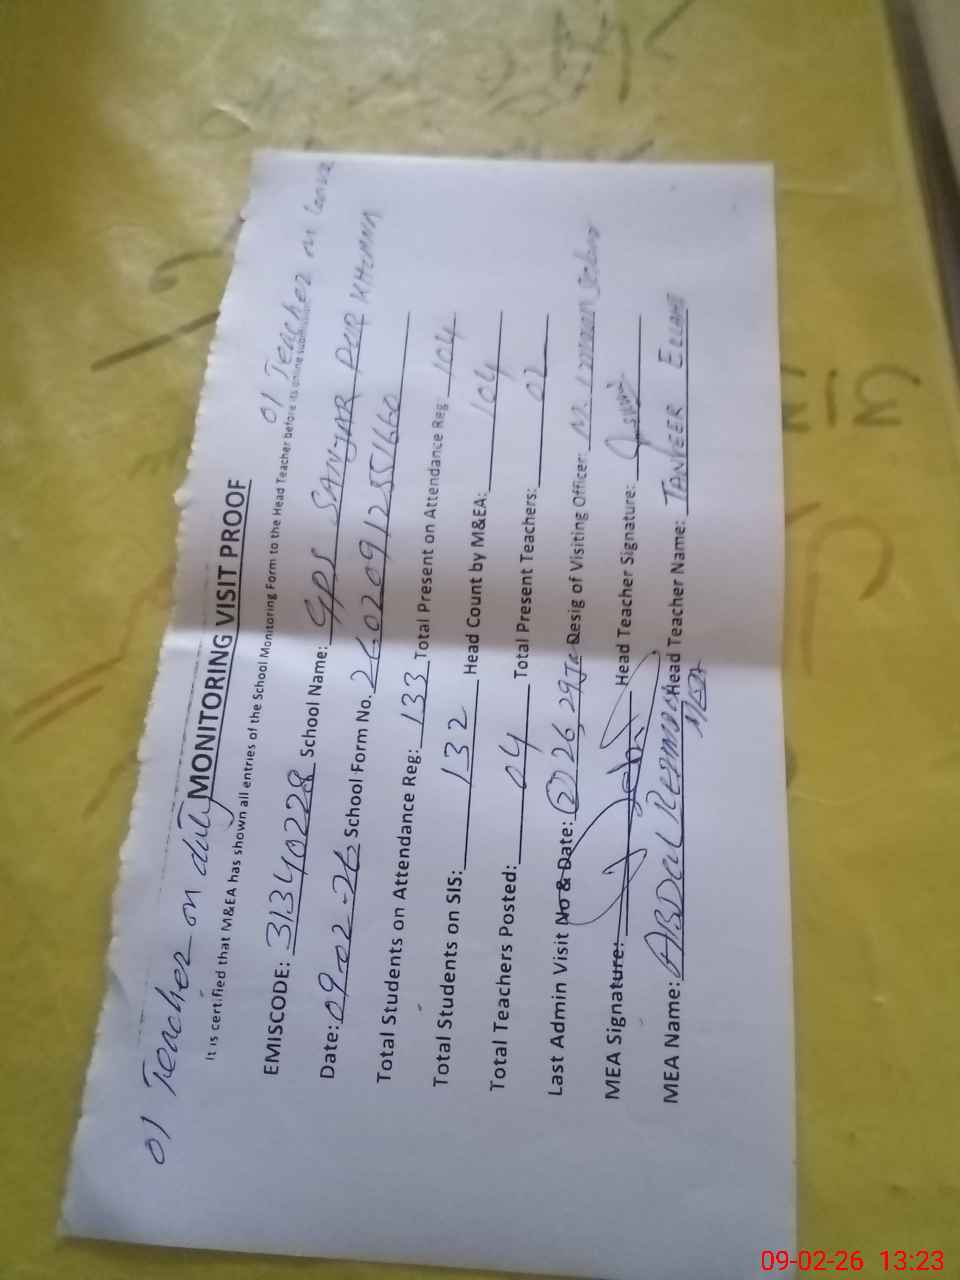 01 Teacher on duty
MONITORING VISIT PROOF
01 Teacher on
It is certified that M&EA has shown all entries of the School Monitoring Form to the Head Teacher before its online submission
EMISCODE: 31340228 School Name: GPS SANJAR PUR
Date: 09-02-26 School Form No. 26020912551660
Total Students on Attendance Reg: 133 Total Present on Attendance Reg: 104
Total Students on SIS: 132 Head Count by M&EA: 104
Total Teachers Posted: 04 Total Present Teachers: 02
Last Admin Visit No & Date: (2) 26, 29 Desig of Visiting Officer: M.
MEA Signature: Head Teacher Signature:
MEA Name: ABDUL Head Teacher Name: TANVEER ELLAHI
MEA
09-02-26 13:23